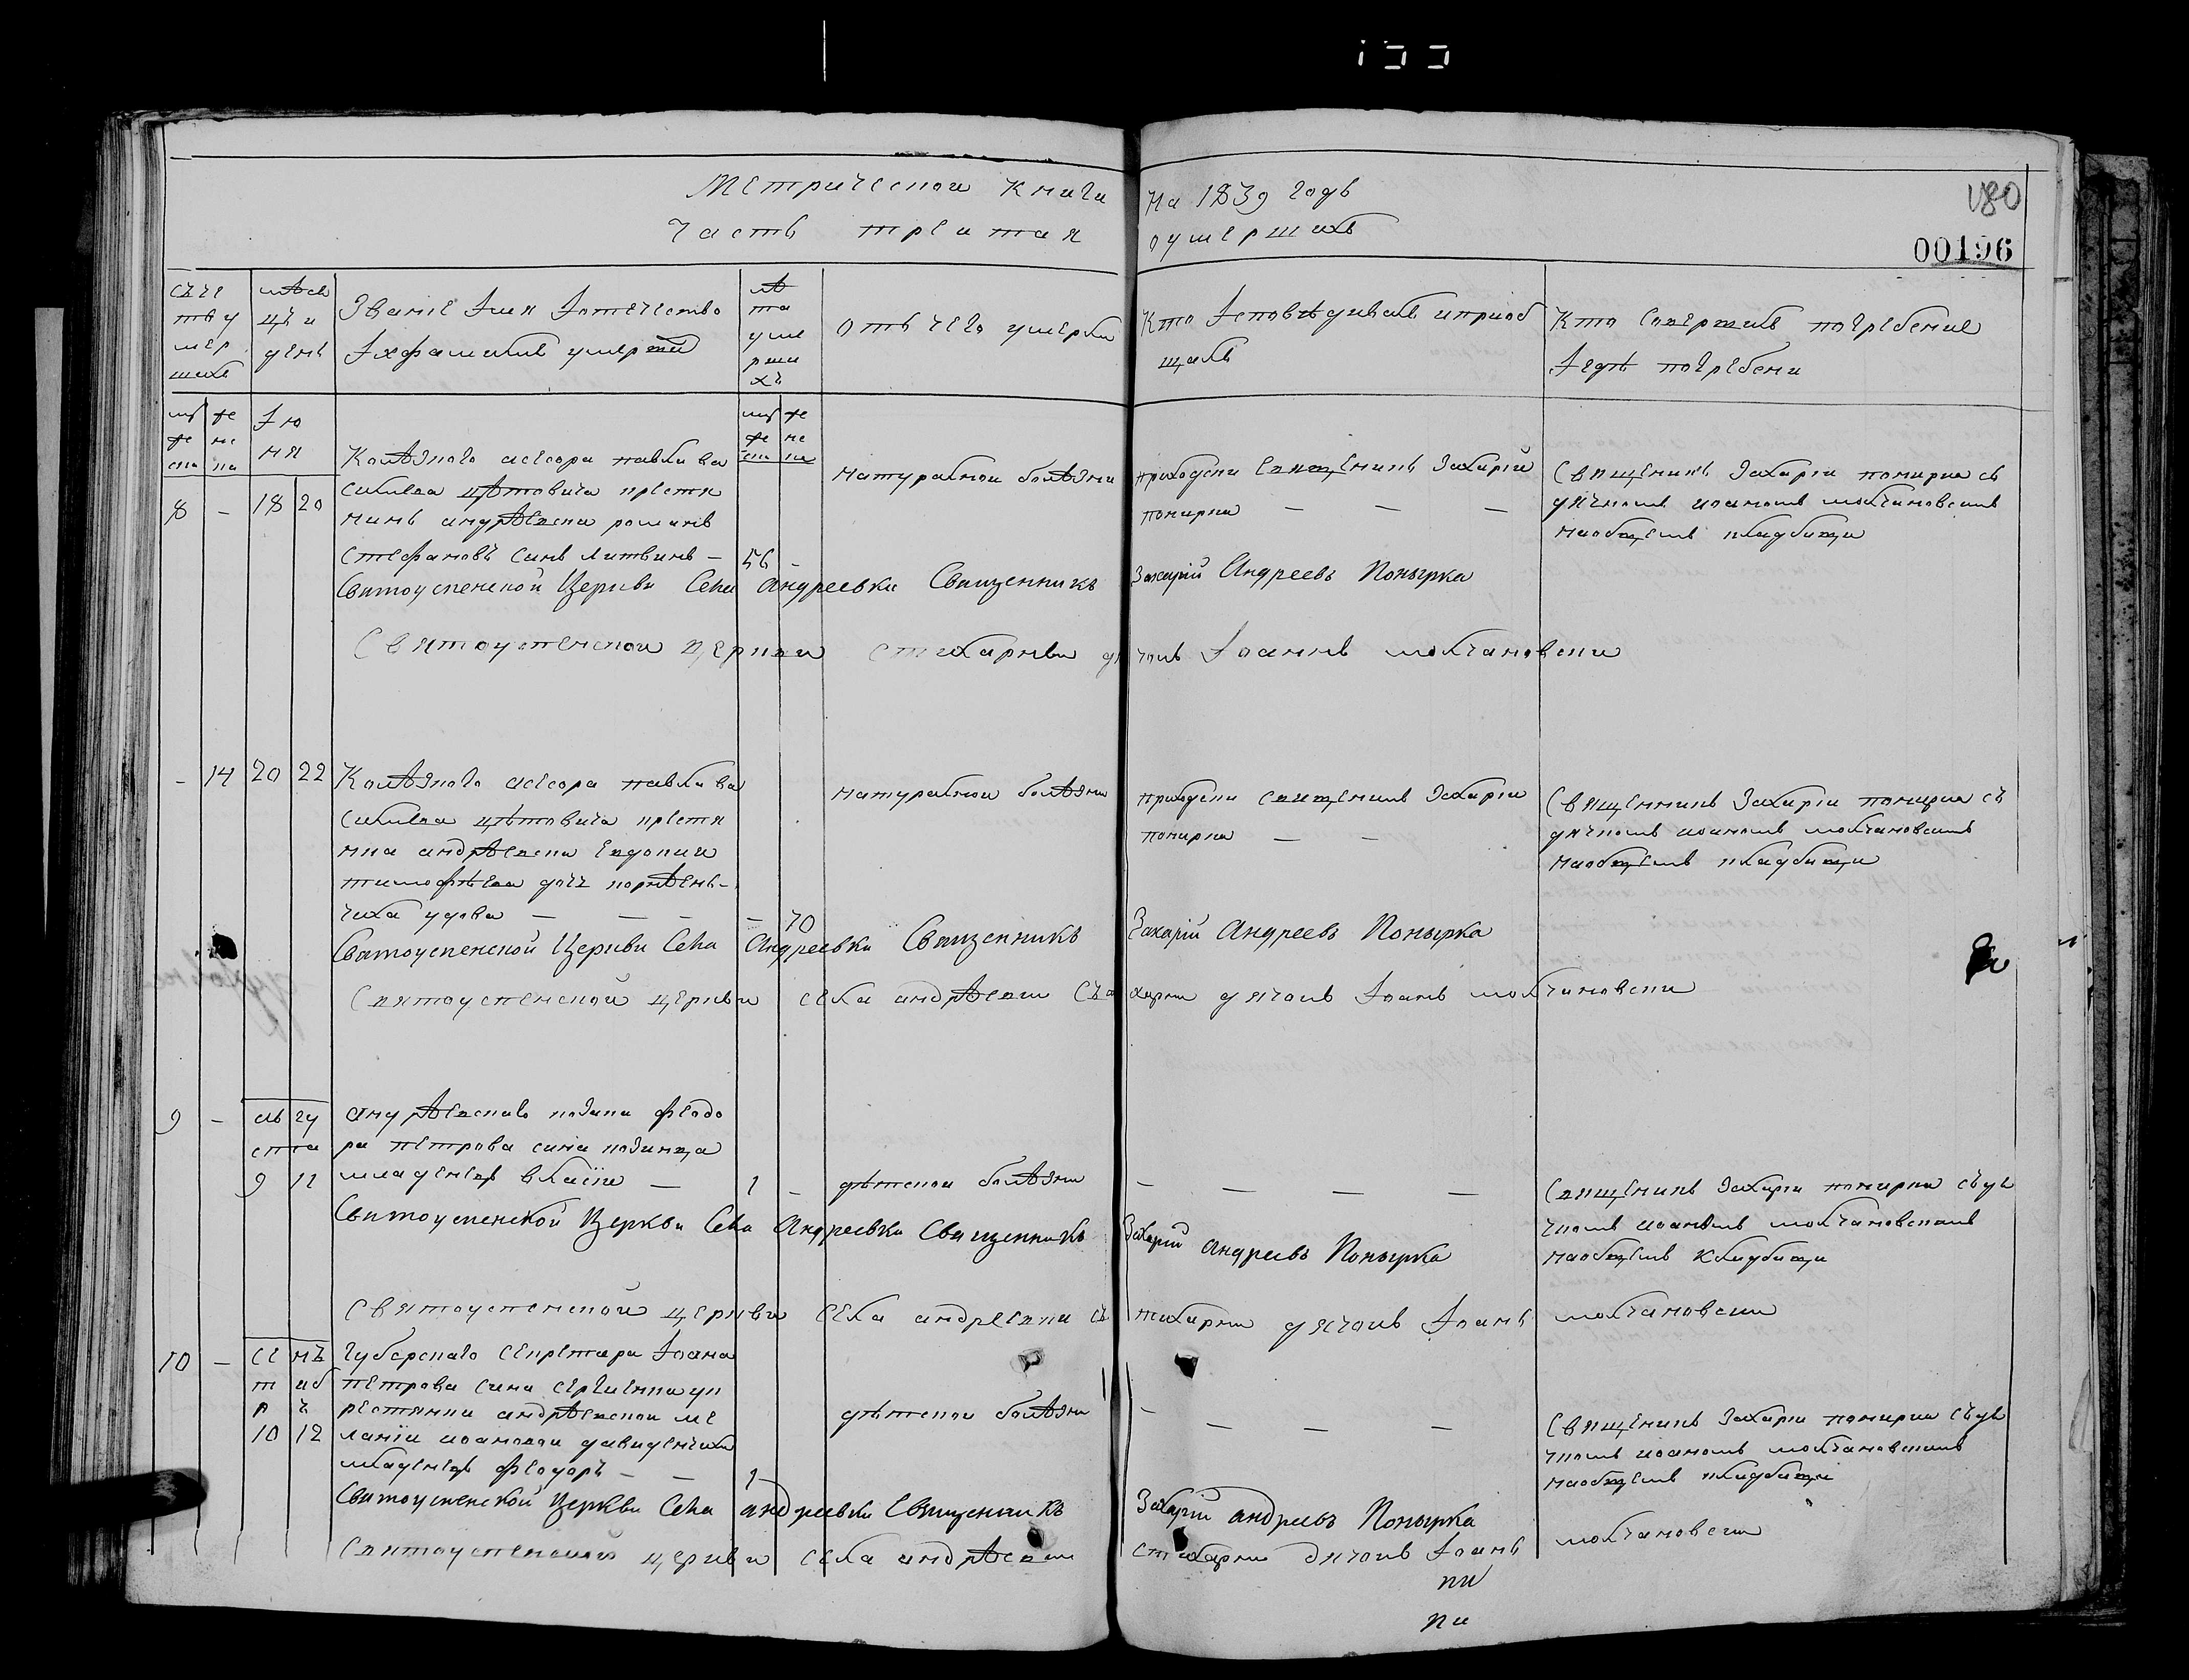 Метрической Книги на 1839 годъ
Часть третая оумершихъ
180
00196
счетъ умершихъ
мѣсяцъ и день
Званіе Имя Iотечество Iхфамиліе умерши
лѣта умершихъ
отъ чего умерли
Кто Iсповѣдивалъ иприобщалъ
Кто совершилъ погребение Iгдѣ погребени
мужеска женска
Iюня
мужеска женска
8 - 18 20
Колѣзного асесора павла ва
силиева цѣтовича крестя
нинъ андрѣевки романъ
стефановъ синъ литвинъ - 56 -
натуралнои болѣзни
приходски священикъ Захарій
понирка - - -
Священикъ Захарія понирка съ
дячкомъ иоаномъ молчановскимъ
наобщемъ кладбищи
Святоуспенской Церкви Села Андреевки Священникъ Захарій Андреевъ Понырка
Святоуспенскои церкви стихарнви дячокъ Iоаннъ молчановски
- 14 20 22
Колѣзного асесора павла ва
силиева цѣтовича крестя
нка андрѣевки Евдокия
тимофѣева дочъ корнѣенъ-
чиха удова - - - - 70
натуралнои болѣзни
приходски священикъ Захарія
понирка - -
Священникъ Захарія понирка съ
дячкомъ иоаномъ молчановскимъ
наобщемъ кладбищи
Святоуспенской Церкви Села Андреевки Священникъ Захарій Андреевъ Понырка
Святоуспенской церкви села андрѣевки дячокъ Iоанъ молчановски
9 - августа
9 11
андрѣевскаго козака феодо
ра петрова сина козинца
младенецъ власiи - 1 -
дѣтскои болѣзни
- - - -
Священикъ Захарія понирка съдя
чкомъ иоаномъ молчановскимъ
наобщемъ кладбищи
Святоуспенской Церкви Села Андреевки Священникъ Захарій Андреевъ Понырка
Святоуспенской церкви села андреевки стихарни дячокъ Iоанъ молчановски
10 - сентября
10 12
Губерскаго секретара Iоана
петрова сина сергиенка ук
рестянки андрѣевскои ме
ланіи иоановои давиденчихи
младенецъ феодоръ - - 1
дѣтскои болѣзни
- - - -
Священикъ Захарія понирка съдя
чкомъ иоаномъ молчановскимъ
наобщемъ кладбищи
Святоуспенской Церкви Села андреевки Священникъ Захарій андреевъ Понырка
Святоуспенской церкви села андрѣевки стихарни дячокъ Iоанъ молчановски